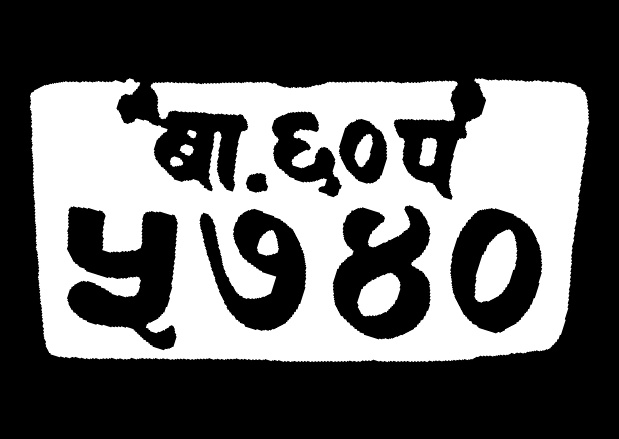 बा.६०प
५७४०